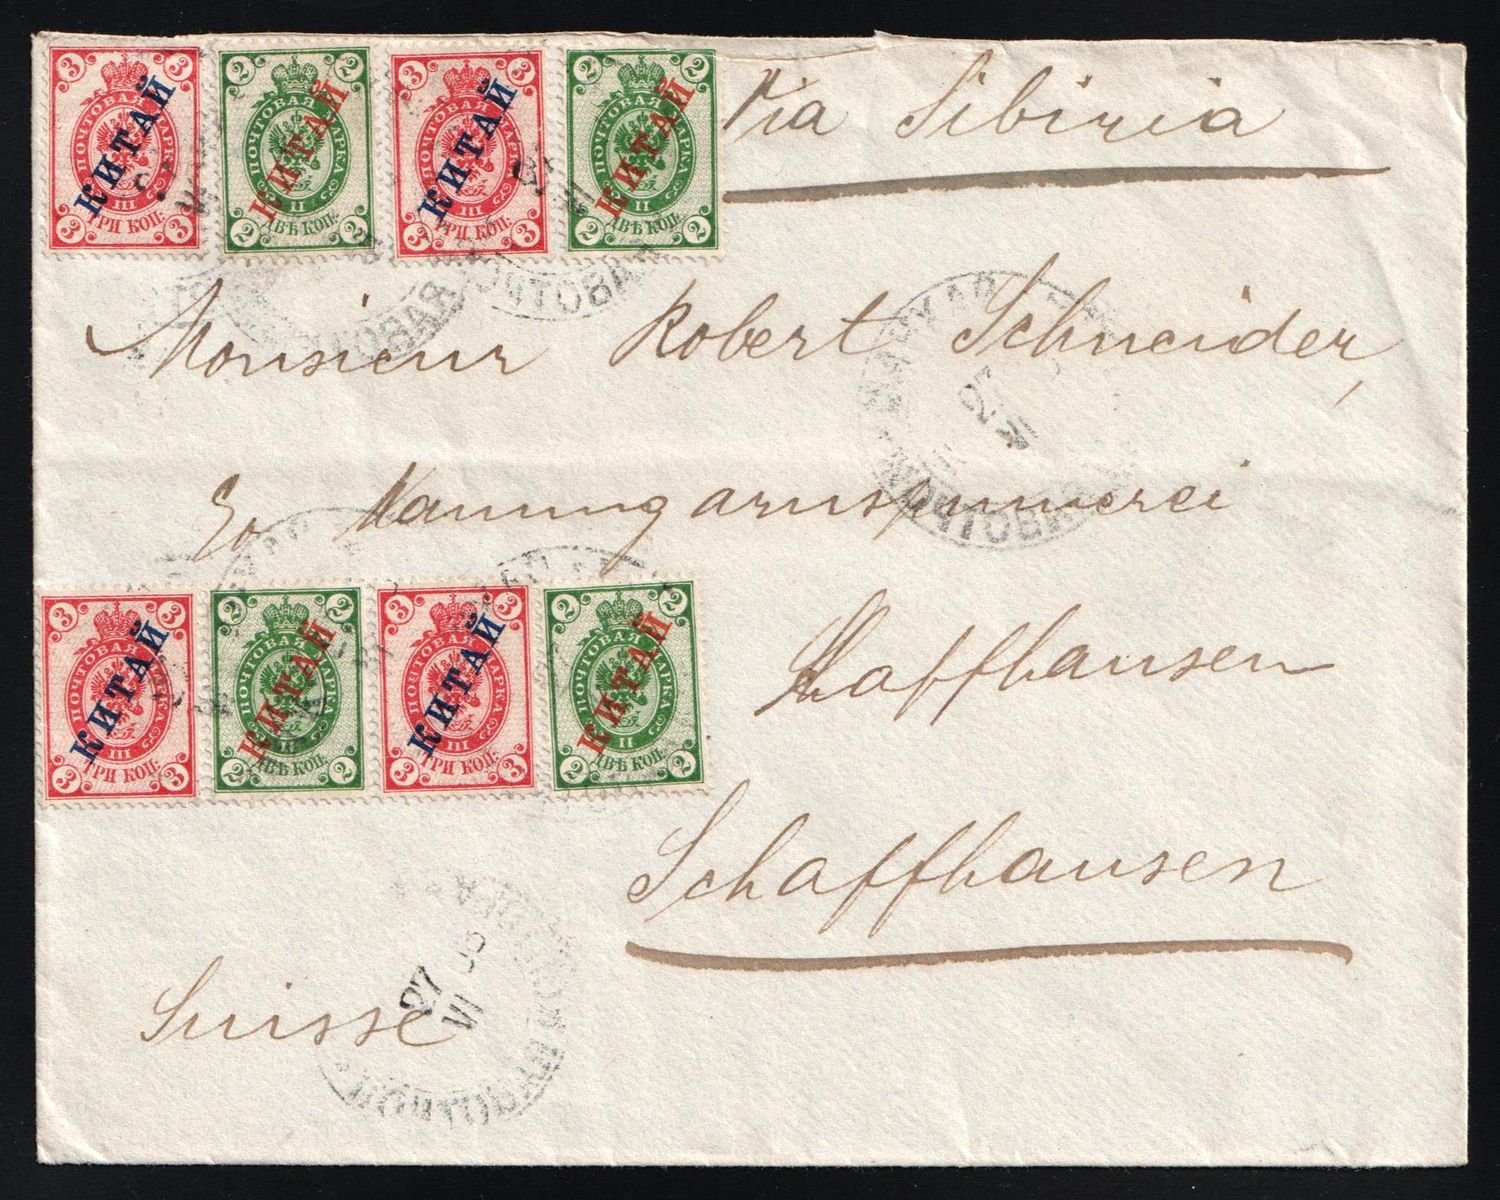 3 3 2 2 3 3 2 2
ПОЧТОВАЯ МАРКА ПОЧТОВАЯ МАРКА ПОЧТОВАЯ МАРКА ПОЧТОВАЯ МАРКА
КИТАЙ КИТАЙ КИТАЙ КИТАЙ
III II III II
ТРИ КОП. ДВѢ КОП. ТРИ КОП. ДВѢ КОП.
3 3 2 2 3 3 2 2
Via Sibiria
Monsieur Robert Schneider,
ПОЧТОВАЯ
27
VI
Kammgarnspinnerei
3 3 2 2 3 3 2 2
ПОЧТОВАЯ МАРКА ПОЧТОВАЯ МАРКА ПОЧТОВАЯ МАРКА ПОЧТОВАЯ МАРКА
КИТАЙ КИТАЙ КИТАЙ КИТАЙ
III II III II
ТРИ КОП. ДВѢ КОП. ТРИ КОП. ДВѢ КОП.
3 3 2 2 3 3 2 2
Schaffhausen
Suisse
27
VI